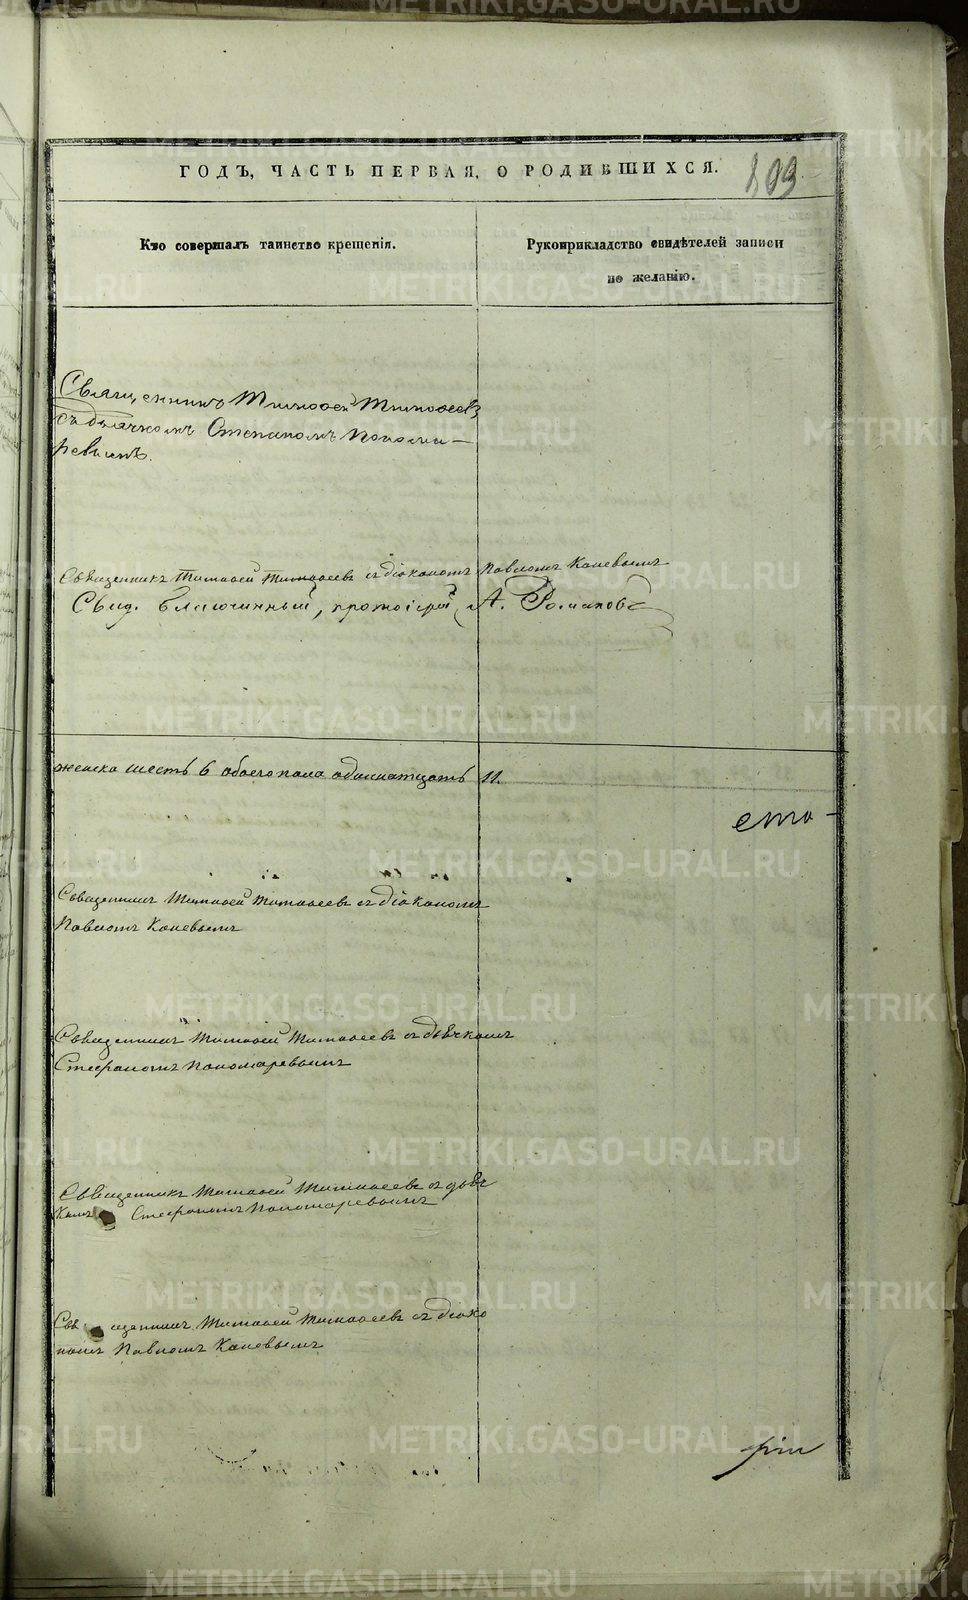 ГОДЪ, ЧАСТЬ ПЕРВАЯ, О РОДИВШИХСЯ.
Кто совершалъ таинство крещенія.
Рукоприкладство свидѣтелей записи
по желанію.
Священникъ Тимофей Тимофеевъ
съ дьячкомъ Степаномъ Понома-
ревымъ.
Священникъ Тимофей Тимофеевъ съ діакономъ Павломъ Каневымъ
Свид. благочинный, протоіерей А. Романовъ
женска шесть 6 обоего пола одиннатцать 11.
сто-
Священникъ Тимофей Тимофеевъ съ діакономъ
Павломъ Каневымъ
Священникъ Тимофей Тимофеевъ съ дьячкомъ
Стефаномъ Пономаревымъ
Священникъ Тимофей Тимофеевъ съ дьяч
комъ Стефаномъ Пономаревымъ
Священникъ Тимофей Тимофеевъ съ діако
номъ Павломъ Каневымъ
METRIKI.GASO-URAL.RU